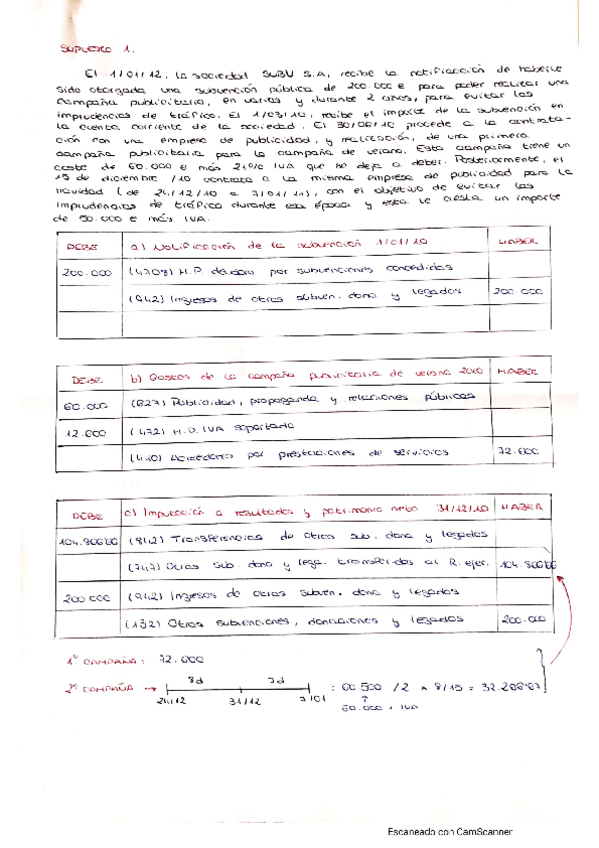 SUPUESTO 1.
El 1/01/12, la sociedad SUBV S.A, recibe la notificación de haberle
sido otorgada una subvención pública de 200.000 € para poder realizar una
campaña publicitaria, en varias y durante 2 años, para evitar las
imprudencias de tráfico. El 1/03/10, recibe el importe de la subvención en
la cuenta corriente de la sociedad. El 30/06/10 procede a la contrata-
ción con una empresa de publicidad, y realización, de una primera
campaña publicitaria para la campaña de verano. Esta campaña tiene un
coste de 60.000 € más 21% IVA que se deja a deber. Posteriormente, el
15 de diciembre /10 contrata a la misma empresa de publicidad para la
navidad (de 24/12/10 a 7/01/11), con el objetivo de evitar las
imprudencias de tráfico durante esa época y esta le cuesta un importe
de 50.000 € más IVA.
DEBE a) Notificación de la subvención 1/01/10 HABER
200.000 (4708) H.P. deudora por subvenciones concedidas
(942) Ingresos de otras subven. dona y legados 200.000
DEBE b) Gastos de la campaña publicitaria de verano 2010 HABER
60.000 (627) Publicidad, propaganda y relaciones públicas
12.600 (472) H.P. IVA soportado
(410) Acreedores por prestaciones de servicios 72.600
DEBE c) Imputación a resultados y patrimonio neto 31/12/10 HABER
(842) Transferencias de otras sub. dona y legados
(747) Otras sub. dona y lega. transferidas al R. ejer.
200.000 (942) Ingresos de otras subven. dona y legados
(132) Otras subvenciones, donaciones y legados 200.000
1ª CAMPAÑA: 72.600
2ª CAMPAÑA → 8d 7d : 60.500 /2 × 8/15 = 32.266'67
24/12 31/12 7/01 50.000 + IVA
Escaneado con CamScanner